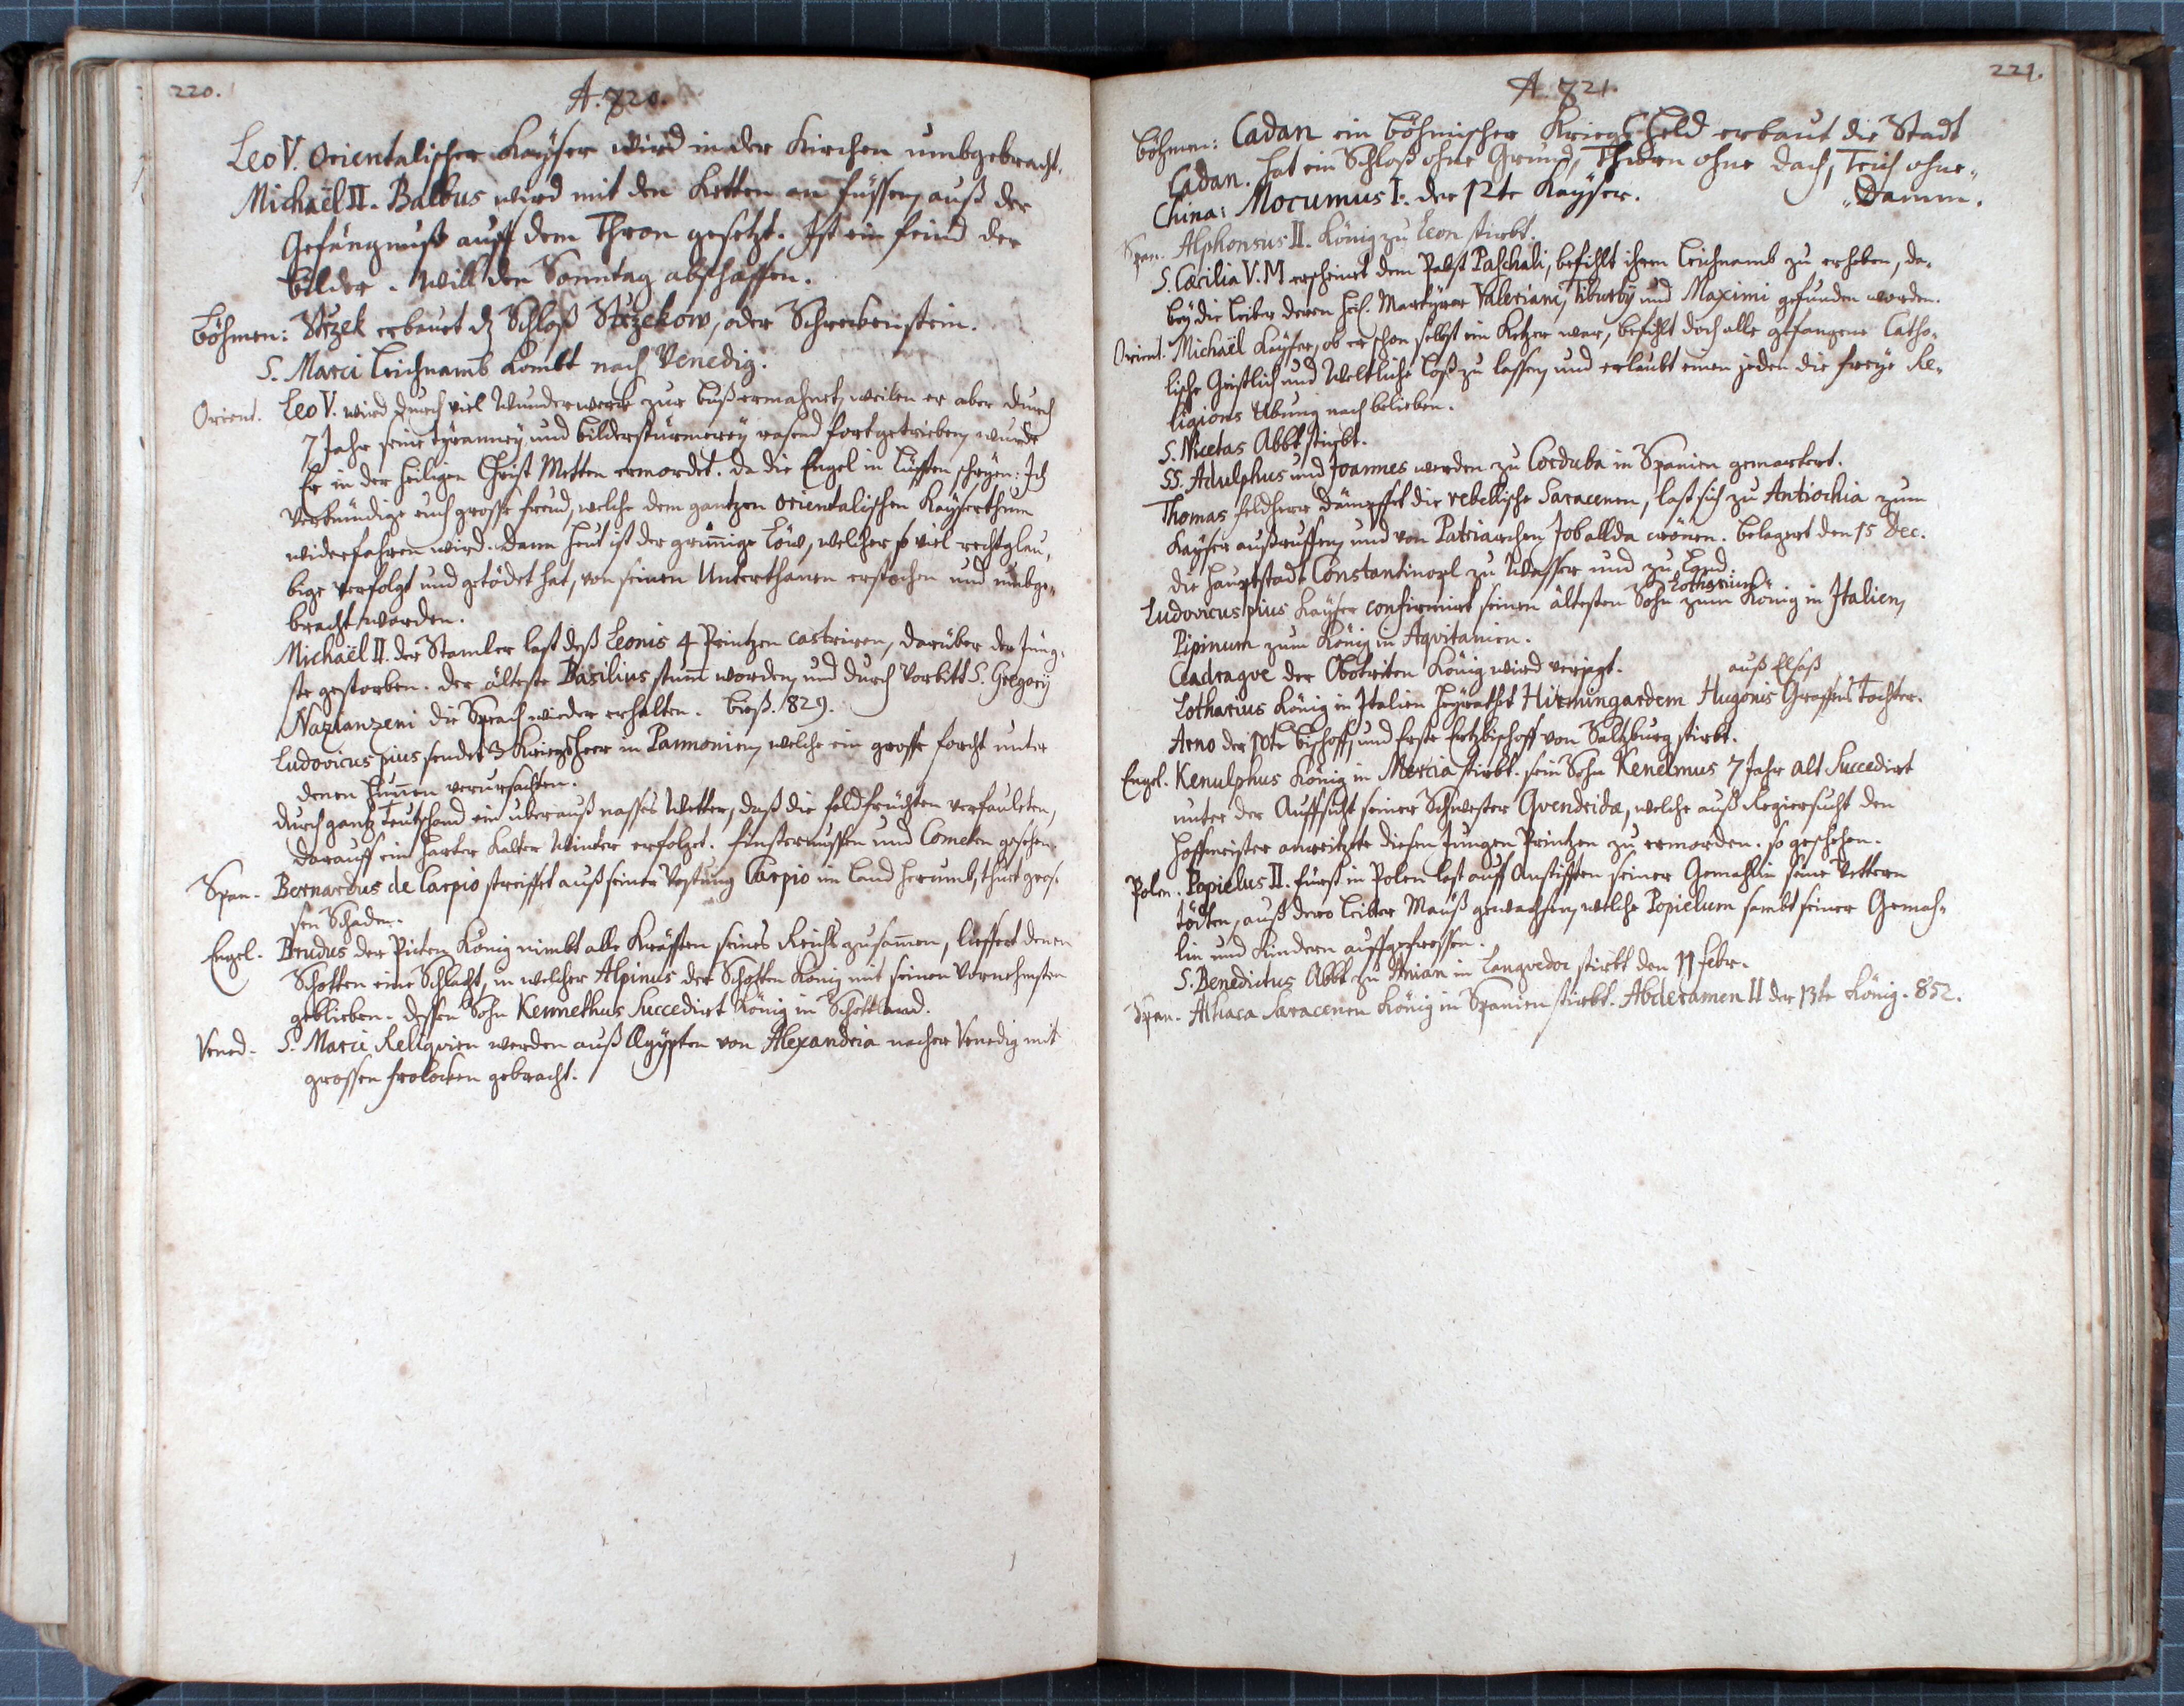 220.
A. 820.
Leo V. Orientalischer Kaÿser wird in der Kirchen umbgebracht.
Michaël II. Balbus wird mit den Ketten an füssen, auß der
Gefängnuß auff dem Thron gesetzt. Ist ein feind der
bilder. Will den Sonntag abschaffen.
Böhmen: Strzek erbauet dz Schloß Strzekow, oder Schrekenstein.
S. Marci Leichnamb kombt nach Venedig.
Orient. Leo V. wird durch viel Wunderwerck zur buß ermahnet, weilen er aber durch
7 Jahr seine tÿranneÿ und bilderstürmereÿ rasend fortgetrieben, wurde
Er in der Heiligen Christ Metten ermordet. da die Engel in Lüfften schrÿen: Ich
Verkündige euch grosse freud, welche dem gantzen Orientalischen Kaÿserthum
widerfahren wird. dann heut ist der grimmige Löw, welcher so viel rechtglau-
bige verfolgt und getödet hat, von seinen Unterthanen erstochen und umbge-
bracht worden.
Michaël II. der Stamler last deß Leonis 4 Printzen castriren, darüber der Jüng-
ste gestorben. der älteste Basilius stumm worden, und durch Vorbitt S. Gregorÿ
Nazianzeni die Sprach wieder erhalten. biß. 829.
Ludovicus pius sendet 3 KriegsHeer in Pannonien, welche ein grosse forcht unter
denen Hunnen verursachten.
durch gantz Teutschand ein uberauß nasses Wetter, daß die feldfrüchten verfaulten,
darauff ein harter kalter Winter erfolget. finsternussen und Cometen gesehen.
Span. Bernardus de Carpio streiffet auß seiner Vestung Carpio im Land herumb, thuet gros-
sen Schaden.
Engel. Brudus der Picten König nimbt alle kräfften seines Reichs zusammen, lieffert denen
Schotten eine Schlacht, in welcher Alpinus der Schotten König mit seinen Vornehmsten
geblieben. dessen Sohn Kennethus Succedirt König in Schottland.
Vened. S. Marci Reliqvien werden auß Ægÿpten von Alexandria nacher Venedig mit
grossen frolocken gebracht.
221.
A. 821.
Böhmen: Cadan ein böhmischer Kriegs Held erbaut die Stadt
Cadan. hat ein Schloß ohne Grund, Thuren ohne dach, Teich ohne
Damm.
China: Mocumus I. der 12te Kaÿser.
Span. Alphonsus II. König zu Leon stirbt.
S. Cæcilia V. M. erscheinet dem Pabst Paschali, befihlt ihren Leichnamb zu erheben, da-
beÿ die Leiber deren heil. Martÿrer Valeriani, Tiburtÿ und Maximi gefunden worden.
Orient. Michaël Kaÿser, ob er schon selbst ein Ketzer war, befihlt doch alle gefangene Catho-
lische Geistlich und Weltliche loß zu lassen, und erlaubt einen jeden die freÿe Re-
ligions Übung nach belieben.
S. Nicetas Abbt stirbt.
SS. Adulphus und Joannes werden zu Corduba in Spanien gemartert.
Thomas feldherr dämpffet die rebellische Saracenen, last sich zu Antiochia zum
Kaÿser außruffen, und von Patriarchen Job allda crönen. belagert den 15 Dec.
die Hauptstadt Constantinopl zu Wasser und zu Land.
Ludovicus pius Kaÿser confirmirt seinen ältesten Sohn Lotharium zum König in Italien,
Pipinum zum König in Aqvitanien.
Ceadragve der Obotriten König wird verjagt.
Lotharius König in Italien heÿrathet Hirmingardem Hugonis Graffens auß Elsaß Tochter.
Arno der 10te bischoff, und Erste Ertzbischoff von Saltzburg stirbt.
Engel. Kenulphus König in Mercia stirbt. sein Sohn Kenelmus 7 Jahr alt Succedirt
unter der Auffsicht seiner Schwester Qvendridæ, welche auß Regiersucht den
Hoffmeister anreitzte diesen Jungen Printzen zu ermorden. so geschehen.
Polen. Popielus II. fürst in Polen last auff Anstifften seiner Gemahlin seine Vettern
tödten, auß dero leiber Mäuß gewachsen, welche Popielum sambt seiner Gemah-
lin und Kindern auffgefressen.
S. Benedictus Abbt zu Anian in Langvedoc stirbt den 11 Febr.
Span. Alhaca Saracenen König in Spanien stirbt. Abderamen II der 13te König. 852.